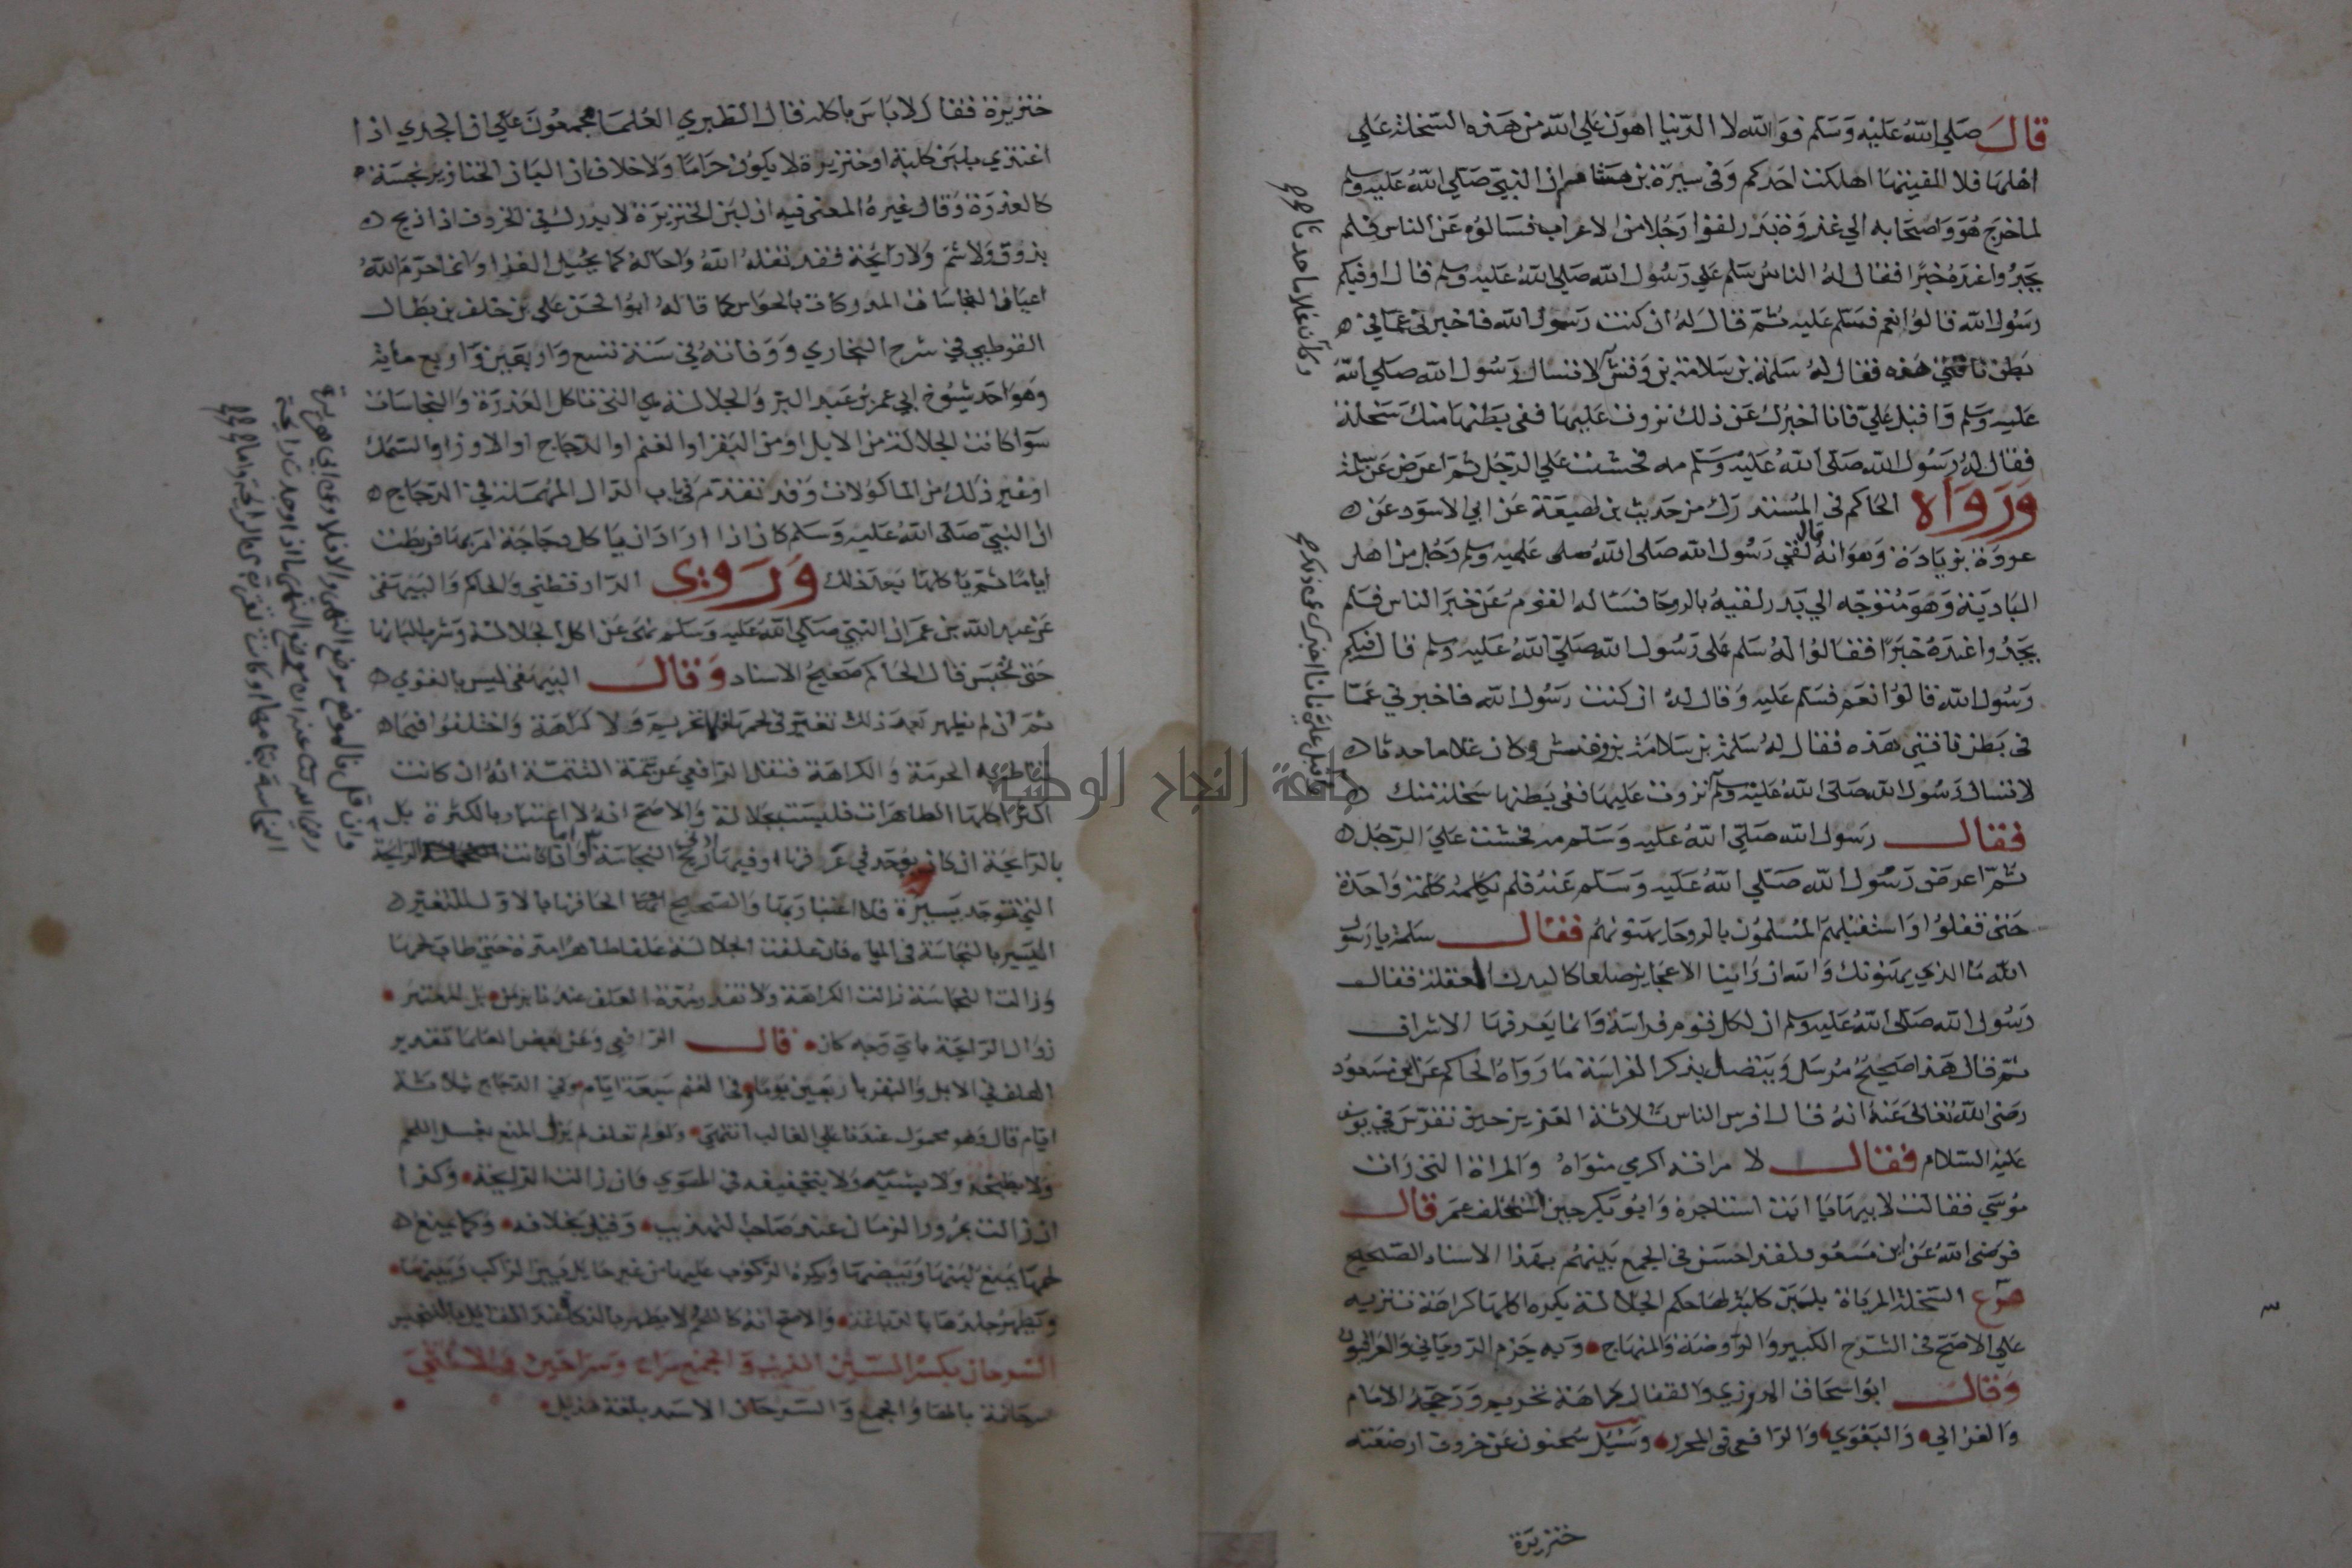 قال صلي الله عليه وسلم فوالله لا الدنيا اهون علي الله من هذه السخلة علي
اهلها فلا الفينها اهلكت احدكم وفي سيرة بن هشام ان النبي صلي الله عليه وسلم
لما خرج هو واصحابه الي غزوة بدر لقوا رجلا من الاعراب فسالوه عن الناس فلم
يجدوا عنده خبرا فقال له الناس سلم علي رسول الله صلي الله عليه وسلم قال اوفيكم
رسول الله قالوا نعم فسلم عليه ثم قال له ان كنت رسول الله فاخبرني عما في
بطن ناقتي هذه فقال له سلمة بن سلامة بن وقش لا تسال رسول الله صلي الله
عليه وسلم واقبل علي فانا اخبرك عن ذلك نزوت عليها ففي بطنها منك سخلة
فقال له رسول الله صلي الله عليه وسلم مه فحشت علي الرجل ثم اعرض عن سلمة
ورواه الحاكم في المستدرك من حديث بن لهيعة عن ابي الاسود عن
عروة بزيادة وهو انه قال لقي رسول الله صلي الله عليه وسلم رجل من اهل
البادية وهو متوجه الي بدر لقيه بالروحا فساله القوم عن خبر الناس فلم
يجدوا عنده خبرا فقالوا له سلم علي رسول الله صلي الله عليه وسلم قال افيكم
رسول الله قالوا نعم فسلم عليه وقال له ان كنت رسول الله فاخبرني عما
في بطن ناقتي هذه فقال له سلمة بن سلامة بن وقش وكان غلاما حدثا
لا تسال رسول الله صلي الله عليه وسلم نزوت عليها ففي بطنها سخلة منك
فقال رسول الله صلي الله عليه وسلم مه فحشت علي الرجل
ثم اعرض رسول الله صلي الله عليه وسلم عنه فلم يكلمه كلمة واحدة
حتي قفلوا واستقبلهم المسلمون بالروحا يهنونهم فقال سلمة يا رسول
الله ما الذي يهنونك والله ان راينا الا عجايز صلعا كالبدن المعقلة فقال
رسول الله صلي الله عليه وسلم ان لكل قوم فراسة وانما يعرفها الاشراف
ثم قال هذا صحيح مرسل ويتصل بذكر الفراسة ما رواه الحاكم عن ابن مسعود
رضي الله تعالي عنه انه قال افرس الناس ثلاثة العزيز حين تفرس في يوسف
عليه السلام فقال لامراته اكرمي مثواه والمراة التي رات
موسي فقالت لابيها يا ابت استاجره وابو بكر حين استخلف عمر قال
فرضي الله عن ابن مسعود لقد احسن في الجمع بينهم بهذا الاسناد الصحيح
فرع السخلة المرباة بلبن كلبة لها حكم الجلالة يكره اكلها كراهة تنزيه
علي الاصح في الشرح الكبير والروضة والمنهاج وبه جزم الروياني والعراقيون
وقال ابو اسحاق المروزي والقفال كراهة تحريم ورجحه الامام
والغزالي والبغوي والرافعي في المحرر وسيل سحنون عن خروف ارضعته
خنزيرة
وكان غلاما حدثا صح
واقبل علي فانا اخبرك عن ذلك صح
خنزيرة فقال لا باس باكله قال الطبري العلما مجمعون علي ان الجدي اذا
اغتذي بلبن كلبة او خنزيرة لا يكون حراما ولا خلاف ان البان الخنازير نجسة
كالعذرة وقال غيره المعني فيه ان لبن الخنزيرة لا يدرك في الخروف اذا ذبح
بذوق ولا شم ولا رايحة فقد نقله الله واحاله كما يحيل الغذا وانما حرم الله
اعيان النجاسات المدركات بالحواس كما قاله ابو الحسن علي بن خلف بن بطال
القرطبي في شرح البخاري ووفاته في سنة تسع واربعين واربع ماية
وهو احد شيوخ ابي عمر بن عبد البر والجلالة هي التي تاكل العذرة والنجاسات
سوا كانت الجلالة من الابل او من البقر او الغنم او الدجاج او الاوز او السمك
او غير ذلك من الماكولات وقد تقدم في باب الدال المهملة في الدجاج
ان النبي صلي الله عليه وسلم كان اذا اراد ان ياكل دجاجة امر بها فربطت
اياما ثم ياكلها بعد ذلك وروي الدارقطني والحاكم والبيهقي
عن عبد الله بن عمر ان النبي صلي الله عليه وسلم نهي عن اكل الجلالة وشرب البانها
حتي تحبس قال الحاكم صحيح الاسناد وقال البيهقي ليس بالقوي
ثم ان لم يظهر بعد ذلك تغير في لحمها فلا تحريم ولا كراهة واختلفوا فيما
تناط به الحرمة والكراهة فنقل الرافعي عن تتمة التتمة انه ان كانت
اكثر اكلها الطاهرات فليست بجلالة والاصح انه لا اعتبار بالكثرة بل
بالرايحة ان كان يوجد في عرقها او فيها ادني ريح النجاسة وان كانت الرايحة
التي توجد يسيرة فلا اعتبار بها والصحيح الحاقها بالاول المتغير
اليسير بالنجاسة في المياه فان علفت الجلالة علفا طاهرا مدة حتي طاب لحمها
وزالت النجاسة زالت الكراهة ولا تقدر مدة العلف عندنا بزمن بل المعتبر
زوال الرايحة باي وجه كان قال الرافعي وعن بعض العلما تقدير
العلف في الابل والبقر باربعين يوما وفي الغنم سبعة ايام وفي الدجاج ثلاثة
ايام قال وهو محمول عندنا علي الغالب انتهي ولو لم تعلف لم يزل المنع بغسل اللحم
ولا بطبخه ولا بشيه ولا بتجفيفه في الهوي وان زالت الرايحة وكذا
ان زالت بمرور الزمان عند صاحب التهذيب وقيل بخلافه وكما يمنع
لحمها يمنع لبنها وبيضها ويكره الركوب عليها من غير حايل بين الراكب وبينها
ويطهر جلدها بالدباغ والاصح انه كاللحم لا يطهر بالذكاة عند القايل بالتنجيس
السرحان بكسر السين الذيب والجمع سراح وسراحين والانثي
سرحانة بالها والجمع والسرحان الاسد بلغة هذيل
جامعة النجاح الوطنية